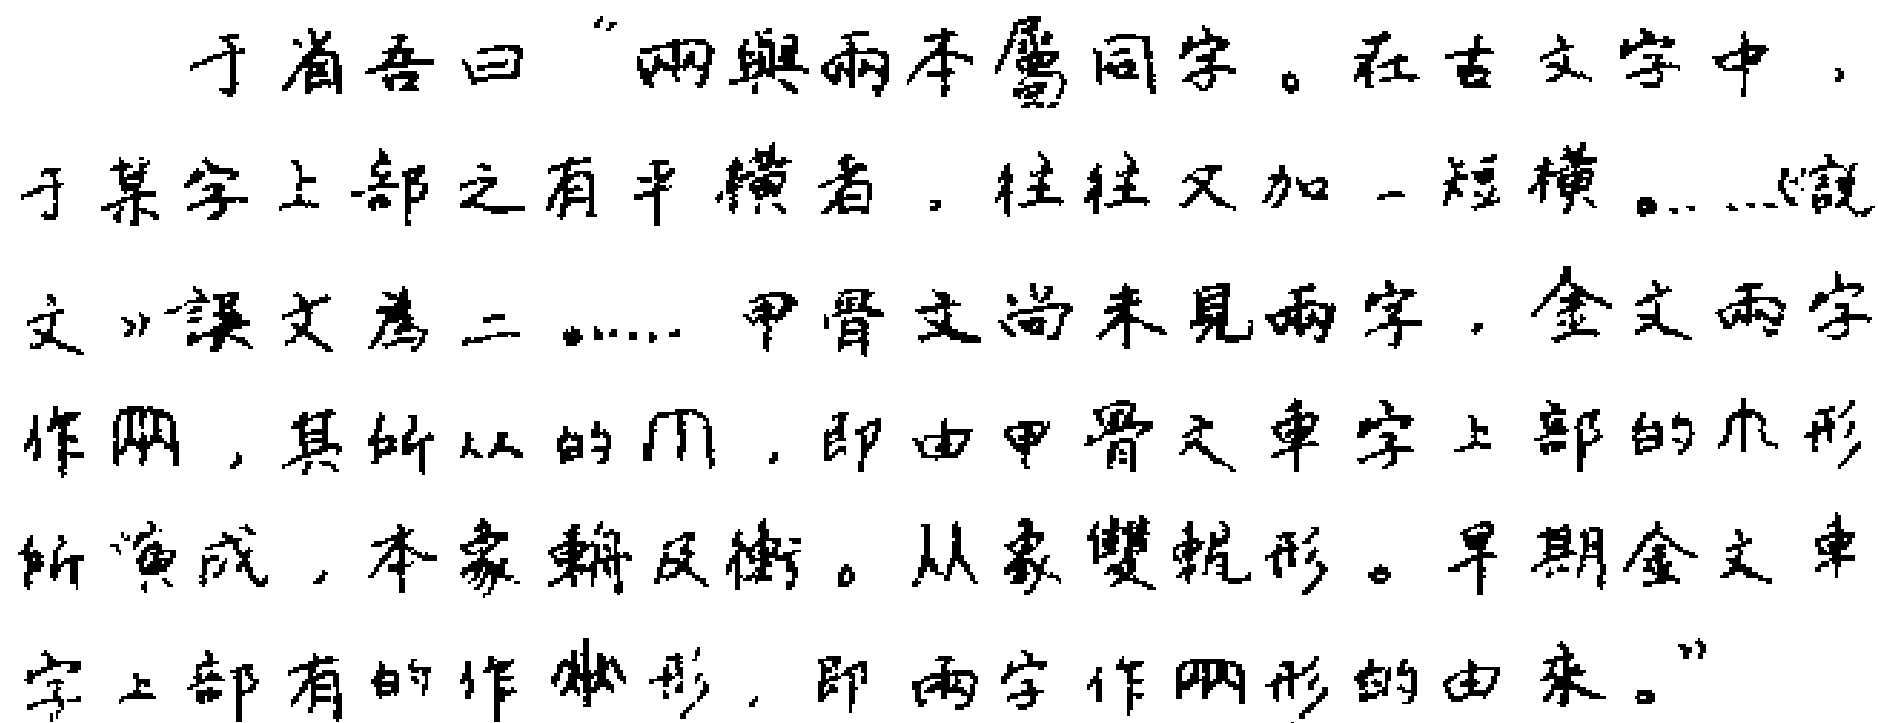 于省吾曰“㒳與兩本屬同字。在古文字中，
于某字上部之有平橫者，往往又加一短橫。……《說
文》誤文為二。……甲骨文尚未見兩字，金文兩字
作㒳，其所从的𠕁，即由甲骨文車字上部的形
所演成，本象輈及衡。从象雙軛形。早期金文車
字上部有的作形，即兩字作㒳形的由來。”